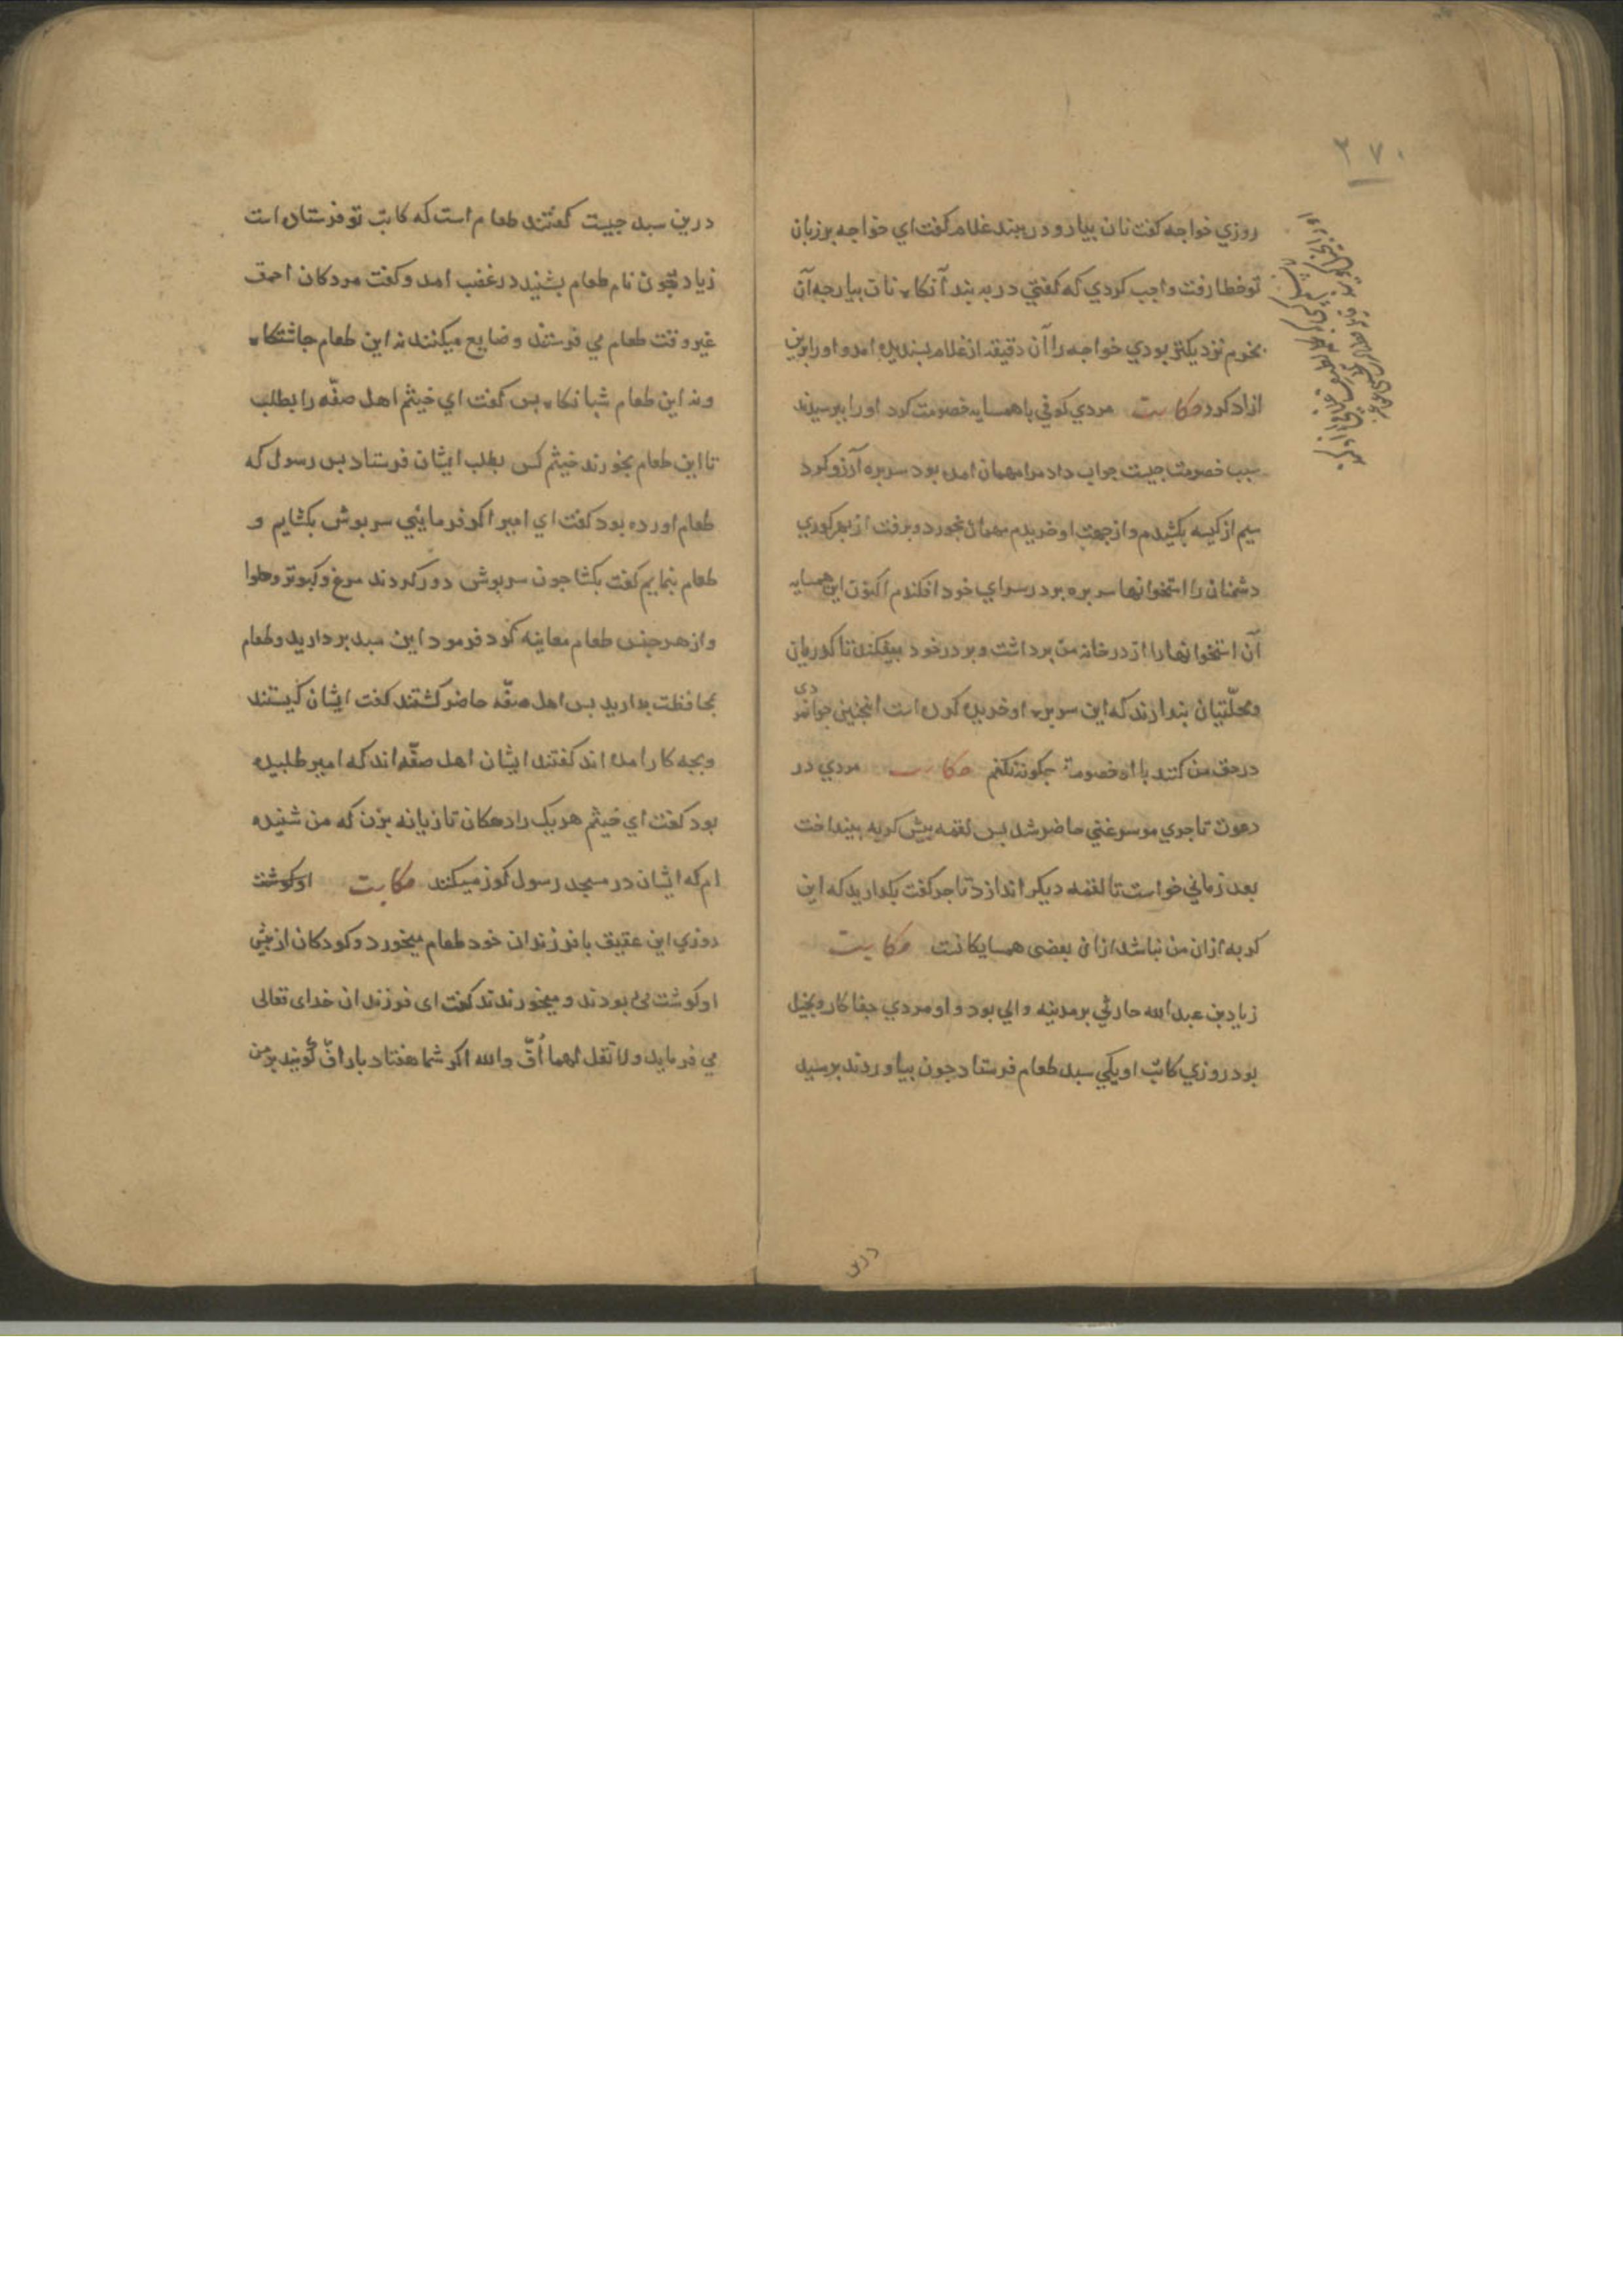 ۲۷۰
روزي خواجه كفت نان بيار و در ببند غلام كفت اي خواجه بر زبان
تو خطا رفت واجب كردي كه كفتي در به بند آنكاه نان بيار جه آن
بحزم نزديكتر بودي خواجه را آن دقيقه از غلام بسنديده امد و او را برين
ازاد كرد حكايت مردي كوفي با همسايه خصومت كرد او را برسيدند
سبب خصومت جيست جواب داد مرا مهمان امده بود سر بره آرزو كرد
سيم از كيسه بكشيدم و از جهت او خريدم مهمان بخورد و برفت از بهر كوري
دشمنان را استخوانها سر بره بر در سراي خود افكندم اكنون اين همسايه
آن استخوانها را از در خانه من برداشت و بر در خود بيفكند تا كدريان
و محلّتيان بندارند كه اين سر بره او خريده كرده است اينجنين جوانمردي
در حق من كنند با او خصومة جكونه نكنم حكايت مردي در
دعوت تاجري موسر غني حاضر شد بس لقمه بيش كربه بينداخت
بعد زماني خواست تا لقمه ديكر اندازد تاجر كفت بكداريد كه اين
كربه ازان من نباشد ازان بعضى همسايكانست حكايت
زياد بن عبد الله حارثي بر مدينه والي بود و او مردي جفاكار و بخيل
بود روزي كاتب او يكي سبد طعام فرستاد جون بياوردند برسيد
درين
درين سبد جيست كفتند طعام است كه كاتب تو فرستاده است
زياد جون نام طعام بشنيد در غضب امد و كفت مردكان احمق
غير وقت طعام مي فرستند و ضايع ميكنند نه اين طعام جاشتكاه
و نه اين طعام شبانكاه بس كفت اي خيثم اهل صفّه را بطلب
تا اين طعام بخورند خيثم كس بطلب ايشان فرستاد بس رسول كه
طعام اورده بود كفت اي امير اكر فرمايئي سربوش بكشايم و
طعام بنمايم كفت بكشا جون سربوش دور كردند مرغ و كبوتر و حلوا
و از هر جنس طعام معاينه كرد فرمود اين سبد برداريد و طعام
بحافظت بداريد بس اهل صفّه حاضر كشتند كفت ايشان كيستند
و بجه كار امده اند كفتند ايشان اهل صفّه اند كه امير طلبيده
بود كفت اي خيثم هر يك را دهكان تازيانه بزن كه من شنيده
ام كه ايشان در مسجد رسول كوز ميكنند حكايت او كوشت
روزي ابن عقيق با فرزندان خود طعام ميخورد و كودكان از بيش
او كوشت مي ربودند و ميخوردند كفت اى فرزندان خداى تعالى
مي فرمايد ولا تقل لهما أفّ والله اكر شما هفتاد بار افّ كوييد بر من